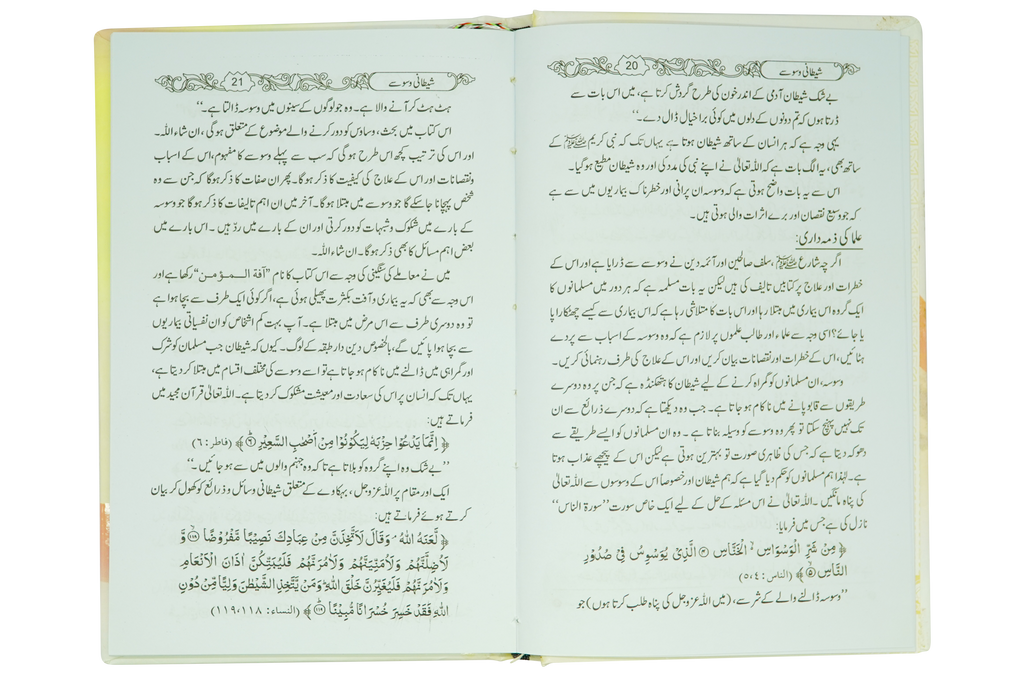 شیطانی وسوسے
20
بے شک شیطان آدمی کے اندر خون کی طرح گردش کرتا ہے، میں اس بات سے
ڈرتا ہوں کہ تم دونوں کے دلوں میں کوئی برا خیال ڈال دے۔‘‘
یہی وجہ ہے کہ ہر انسان کے ساتھ شیطان ہوتا ہے یہاں تک کہ نبی کریم ﷺ کے
ساتھ بھی، یہ الگ بات ہے کہ اللہ تعالیٰ نے اپنے نبی کی مدد کی اور وہ شیطان مطیع ہو گیا۔
اس سے یہ بات واضح ہوتی ہے کہ وسوسہ ان پرانی اور خطرناک بیماریوں میں سے ہے
کہ جو وسیع نقصان اور برے اثرات والی ہوتی ہیں۔
علما کی ذمہ داری:
اگرچہ شارع ﷺ، سلف صالحین اور آئمہ دین نے وسوسے سے ڈرایا ہے اور اس کے
خطرات اور علاج پر کتابیں تالیف کی ہیں لیکن یہ بات مسلمہ ہے کہ ہر دور میں مسلمانوں کا
ایک گروہ اس بیماری میں مبتلا رہا اور اس بات کا متلاشی رہا ہے کہ اس بیماری سے کیسے چھٹکارا پا
یا جائے؟ اسی وجہ سے علماء اور طالب علموں پر لازم ہے کہ وہ وسوسہ کے اسباب سے پردے
ہٹائیں، اس کے خطرات اور نقصانات بیان کریں اور اس کے علاج کی طرف رہنمائی کریں۔
وسوسہ، ان مسلمانوں کو گمراہ کرنے کے لیے شیطان کا ہتھکنڈہ ہے کہ جن پر وہ دوسرے
طریقوں سے قابو پانے میں ناکام ہو جاتا ہے۔ جب وہ دیکھتا ہے کہ دوسرے ذرائع سے ان
تک نہیں پہنچ سکتا تو پھر وہ وسوسے کو وسیلہ بناتا ہے۔ وہ ان مسلمانوں کو ایسے طریقے سے
دھوکہ دیتا ہے کہ جس کی ظاہری صورت تو بہترین ہوتی ہے لیکن اس کے پیچھے عذاب ہوتا
ہے۔ لہٰذا ہم مسلمانوں کو حکم دیا گیا ہے کہ ہم شیطان اور خصوصاً اس کے وسوسوں سے اللہ تعالیٰ
کی پناہ مانگیں۔ اللہ تعالیٰ نے اس مسئلہ کے حل کے لیے ایک خاص سورت ’’سورۃ الناس‘‘
نازل کی ہے جس میں فرمایا:
﴿ مِنْ شَرِّ الْوَسْوَاسِ ۙ الْخَنَّاسِ ۴ الَّذِیْ یُوَسْوِسُ فِیْ صُدُوْرِ
النَّاسِ ۵ ﴾ (الناس: ۵،۴)
’’وسوسہ ڈالنے والے کے شر سے، (میں اللہ عزوجل کی پناہ طلب کرتا ہوں) جو
شیطانی وسوسے
21
ہٹ ہٹ کر آنے والا ہے۔ وہ جو لوگوں کے سینوں میں وسوسہ ڈالتا ہے۔‘‘
اس کتاب میں بحث، وساوس کو دور کرنے والے موضوع کے متعلق ہوگی، ان شاء اللہ۔
اور اس کی ترتیب کچھ اس طرح ہوگی کہ سب سے پہلے وسوسے کا مفہوم، اس کے اسباب
ونقصانات اور اس کے علاج کی کیفیت کا ذکر ہوگا۔ پھر ان صفات کا ذکر ہوگا کہ جن سے وہ
شخص پہچانا جا سکے گا جو وسوسے میں مبتلا ہوگا۔ آخر میں ان اہم تالیفات کا ذکر ہوگا جو وسوسہ
کے بارے میں شکوک و شبہات کو دور کرتی اور ان کے بارے میں ردّ ہیں۔ اس بارے میں
بعض اہم مسائل کا بھی ذکر ہوگا۔ ان شاء اللہ۔
میں نے معاملے کی سنگینی کی وجہ سے اس کتاب کا نام ’’آفۃ المؤمن‘‘ رکھا ہے اور
اس وجہ سے بھی کہ یہ بیماری و آفت بکثرت پھیلی ہوئی ہے، اگر کوئی ایک طرف سے بچا ہوا ہے
تو وہ دوسری طرف سے اس مرض میں مبتلا ہے۔ آپ بہت کم اشخاص کو ان نفسیاتی بیماریوں
سے بچا ہوا پائیں گے، بالخصوص دین دار طبقہ کے لوگ۔ کیوں کہ شیطان جب مسلمان کو شرک
اور گمراہی میں ڈالنے میں ناکام ہو جاتا ہے تو اسے وسوسے کی مختلف اقسام میں مبتلا کر دیتا ہے،
یہاں تک کہ انسان پر اس کی سعادت اور معیشت مشکوک کر دیتا ہے۔ اللہ تعالیٰ قرآن مجید میں
فرماتے ہیں:
﴿ اِنَّمَا یَدْعُوْا حِزْبَهٗ لِیَكُوْنُوْا مِنْ اَصْحٰبِ السَّعِیْرِ ۶ ﴾ (فاطر: ۶)
’’بے شک وہ اپنے گروہ کو بلاتا ہے تاکہ وہ جہنم والوں میں سے ہو جائیں۔‘‘
ایک اور مقام پر اللہ عزوجل، بہکاوے کے متعلق شیطانی وسائل و ذرائع کو کھول کر بیان
کرتے ہوئے فرماتے ہیں:
﴿ لَّعَنَهُ اللّٰهُ ۘ وَقَالَ لَاَتَّخِذَنَّ مِنْ عِبَادِكَ نَصِیْبًا مَّفْرُوْضًا ۱۱۸ وَّ
لَاُضِلَّنَّهُمْ وَلَاُمَنِّیَنَّهُمْ وَلَاٰمُرَنَّهُمْ فَلَیُبَتِّكُنَّ اٰذَانَ الْاَنْعَامِ
وَلَاٰمُرَنَّهُمْ فَلَیُغَیِّرُنَّ خَلْقَ اللّٰهِ ؕ وَمَنْ یَّتَّخِذِ الشَّیْطٰنَ وَلِیًّا مِّنْ دُوْنِ
اللّٰهِ فَقَدْ خَسِرَ خُسْرَانًا مُّبِیْنًا ۱۱۹ ﴾ (النساء: ۱۱۸،۱۱۹)